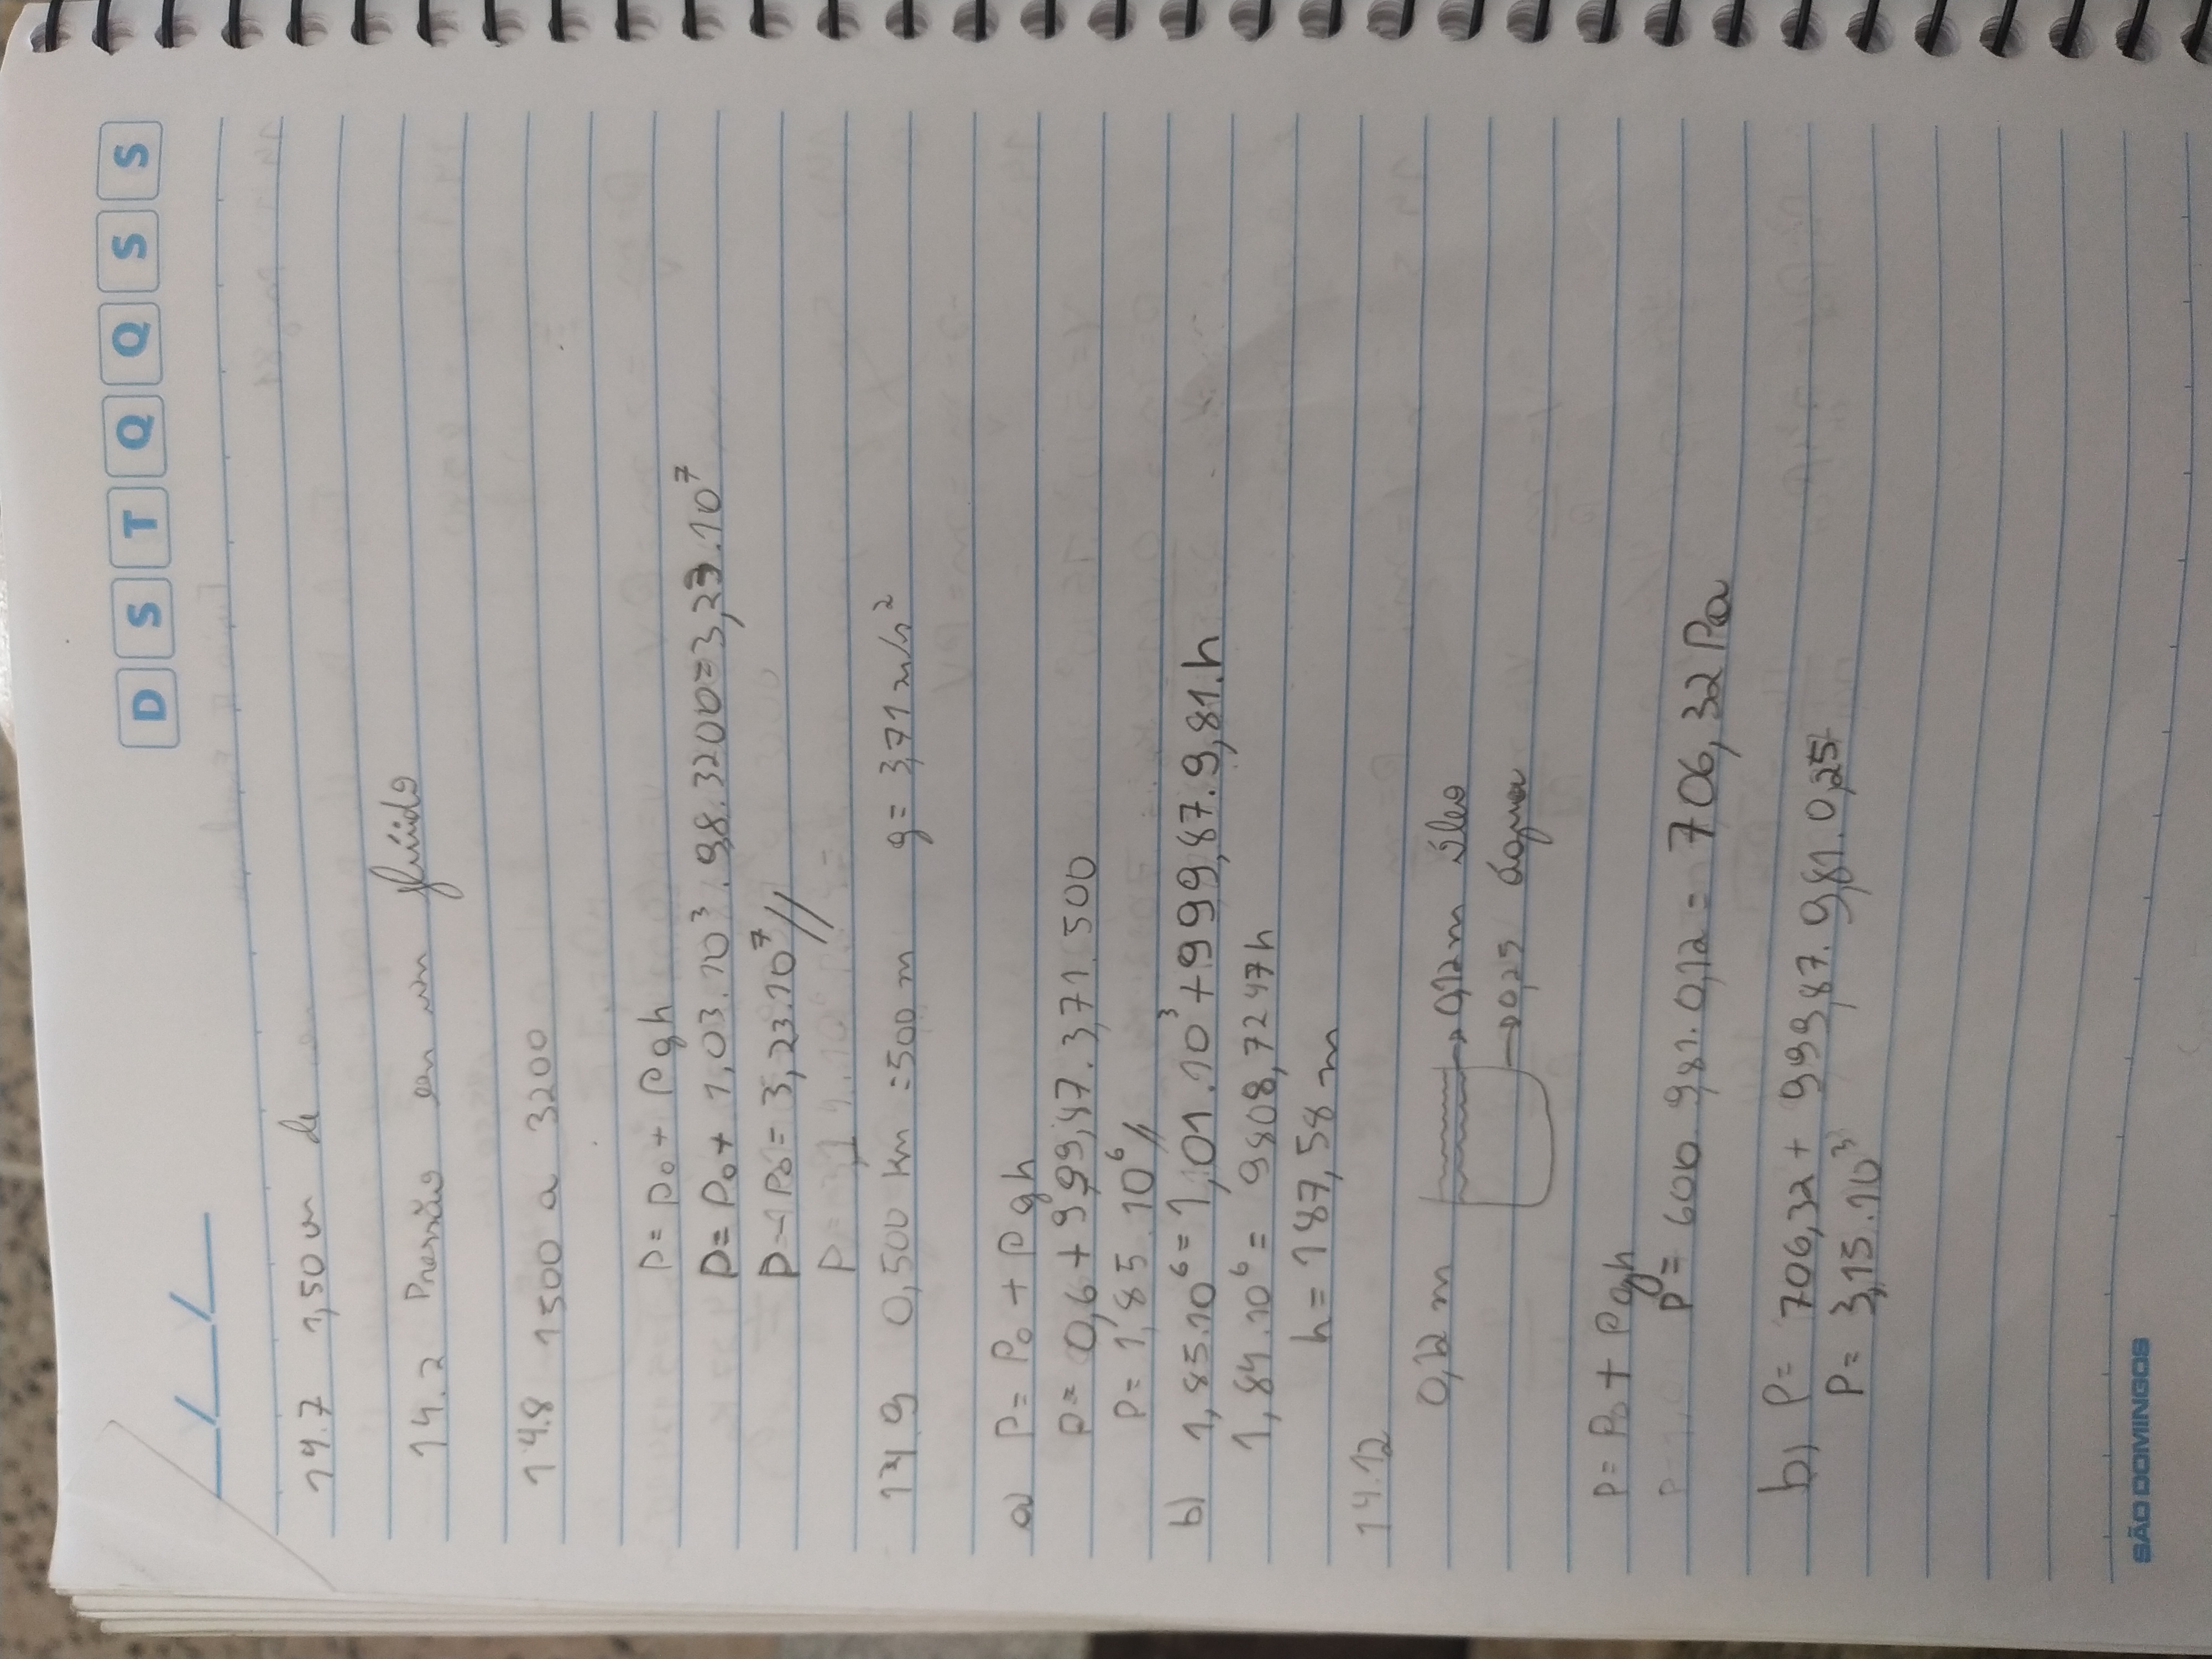 D S T Q Q S S
14.7 1,50 m de
14.2 Pressão em um fluído
14.8 1500 a 3200
P = P₀ + Pgh
P = P₀ + 1,03.10³.9,8.3200 = 3,23.10⁷
P - 1P₀ = 3,23.10⁷//
14.9 0,500 km = 500 m g = 3,71 m/s²
a) P = P₀ + Pgh
P = 0,6 + 999,87.3,71.500
P = 1,85.10⁶//
b) 1,85.10⁶ = 1,01.10³ + 999,87.9,81.h
1,84.10⁶ = 9808,7247h
h = 187,58 m
14.12
0,12 m → 0,12m óleo
→ 0,25 água
P = P₀ + Pgh
P = 600.9,81.0,12 = 706,32 Pa
b) P = 706,32 + 999,87.9,81.0,25
P = 3,15.10³
SÃO DOMINGOS